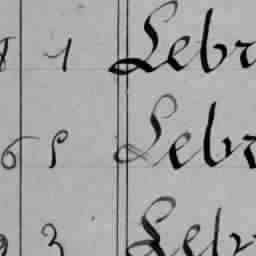 1 Lebr
65 Lebr
3 Lebr